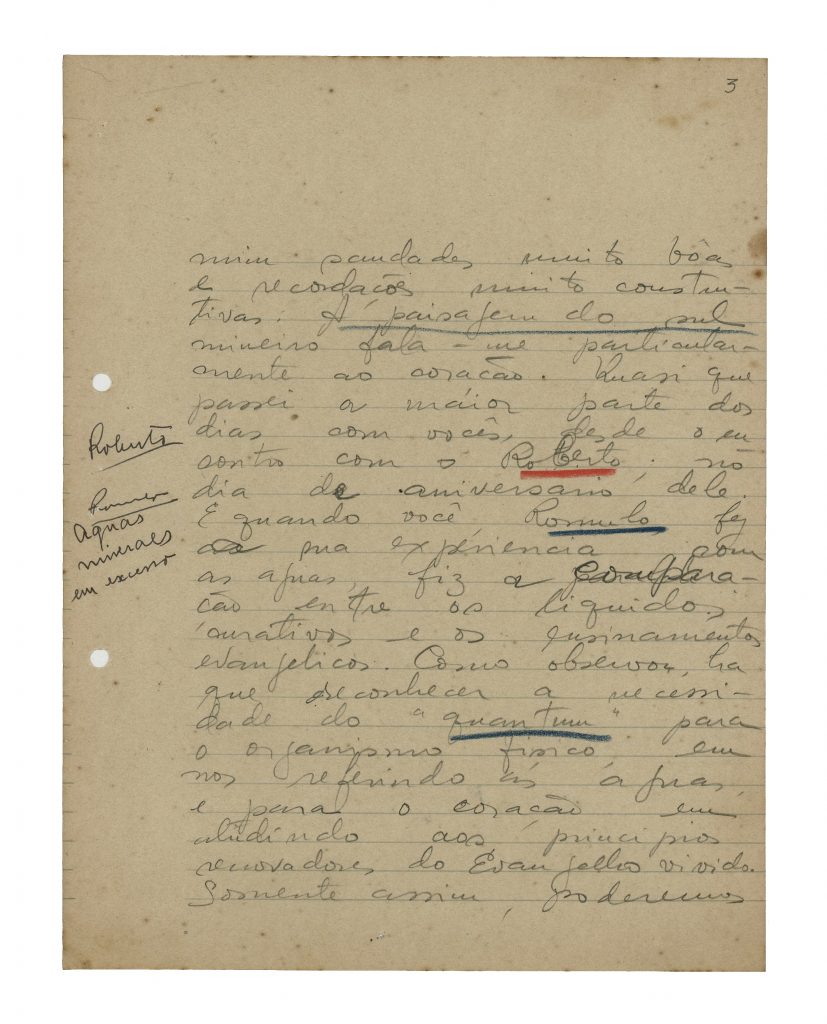 3
mim saudades muito bôas
e recordações muito constru-
tivas. A paisagem do sul
mineiro fala-me particular-
mente ao coração. Kuasi que
passei a maior parte dos
dias com vocês, desde o en
contro com o Roberto, no
dia de aniversario dele.
E quando você Romulo, fez
a sua experiencia com
as aguas, fiz a compara-
ção entre os liquidos
curativos e os ensinamentos
evangelicos. Como observou, ha
que reconhecer a necessi-
dade do "quantum" para
o organismo fisico, em
nos referindo ás aguas,
e para o coração em
aludindo aos principios
renovadores do Evangelho vivido.
Somente assim, poderemos
Roberto
Aguas
mineraes
em excesso